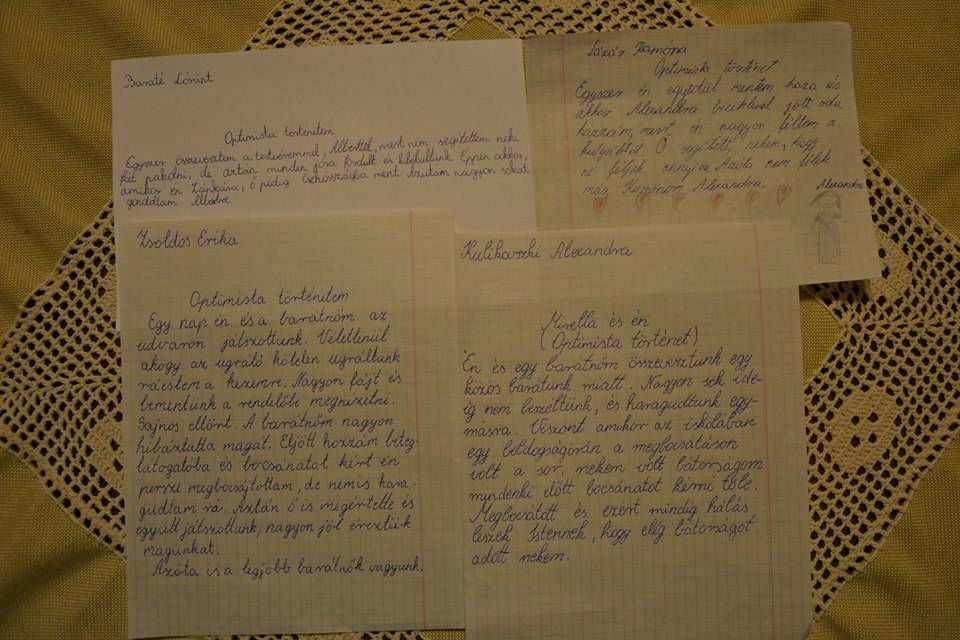 Baraté Lóránt
Optimista történetem
Egyszer összevesztem a testvéremmel, Alberttel, mert nem segítettem neki
fát pakolni, de aztán minden jóra fordult és kibékültünk. Éppen akkor,
amikor én Zánkára, ő pedig Csehországba ment. Azután nagyon sokat
gondoltam Albertre.
Lázár Ramóna
Optimista történet
Egyszer én egyedül mentem haza és
akkor Alexandra biciklivel jött oda
hozzám, mert én nagyon féltem a
kutyáktól. Ő segített nekem, hogy
ne féljek annyira. Azóta nem félek
már. Köszönöm Alexandra.
Alexandra
Zsoldos Erika
Optimista történetem
Egy nap én és a barátnőm az
udvaron játszottunk. Véletlenül
ahogy az ugráló kötélen ugráltunk
ráestem a kezemre. Nagyon fájt és
bementünk a rendelőbe megnézetni.
Sajnos eltört. A barátnőm nagyon
hibáztatta magát. Eljött hozzám beteg-
látogatóba és bocsánatot kért én
persze megbocsájtottam, de nem is hara-
gudtam rá. Aztán ő is megértette és
együtt játszottunk, nagyon jól éreztük
magunkat.
Azóta is a legjobb barátnők vagyunk.
Kulikovszki Alexandra
Mirella és én
(Optimista történet)
Én és egy barátnőm összevesztünk egy
közös barátunk miatt. Nagyon sok ide-
ig nem beszéltünk, és haragudtunk egy-
másra. Viszont amikor az iskolában
egy boldogságórán a megbocsátáson
volt a sor, nekem volt bátorságom
mindenki előtt bocsánatot kérni tőle.
Megbocsátott és ezért mindig hálás
leszek Istennek, hogy elég bátorságot
adott nekem.